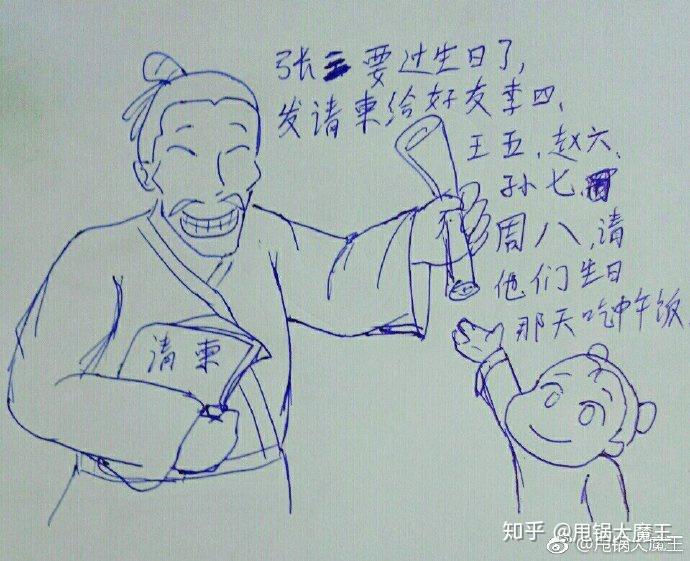 张三要过生日了,
发请柬给好友李四、
王五、赵六、
孙七、
周八,请
他们生日
那天吃中午饭
请柬
知乎 @甩锅大魔王
@甩锅大魔王